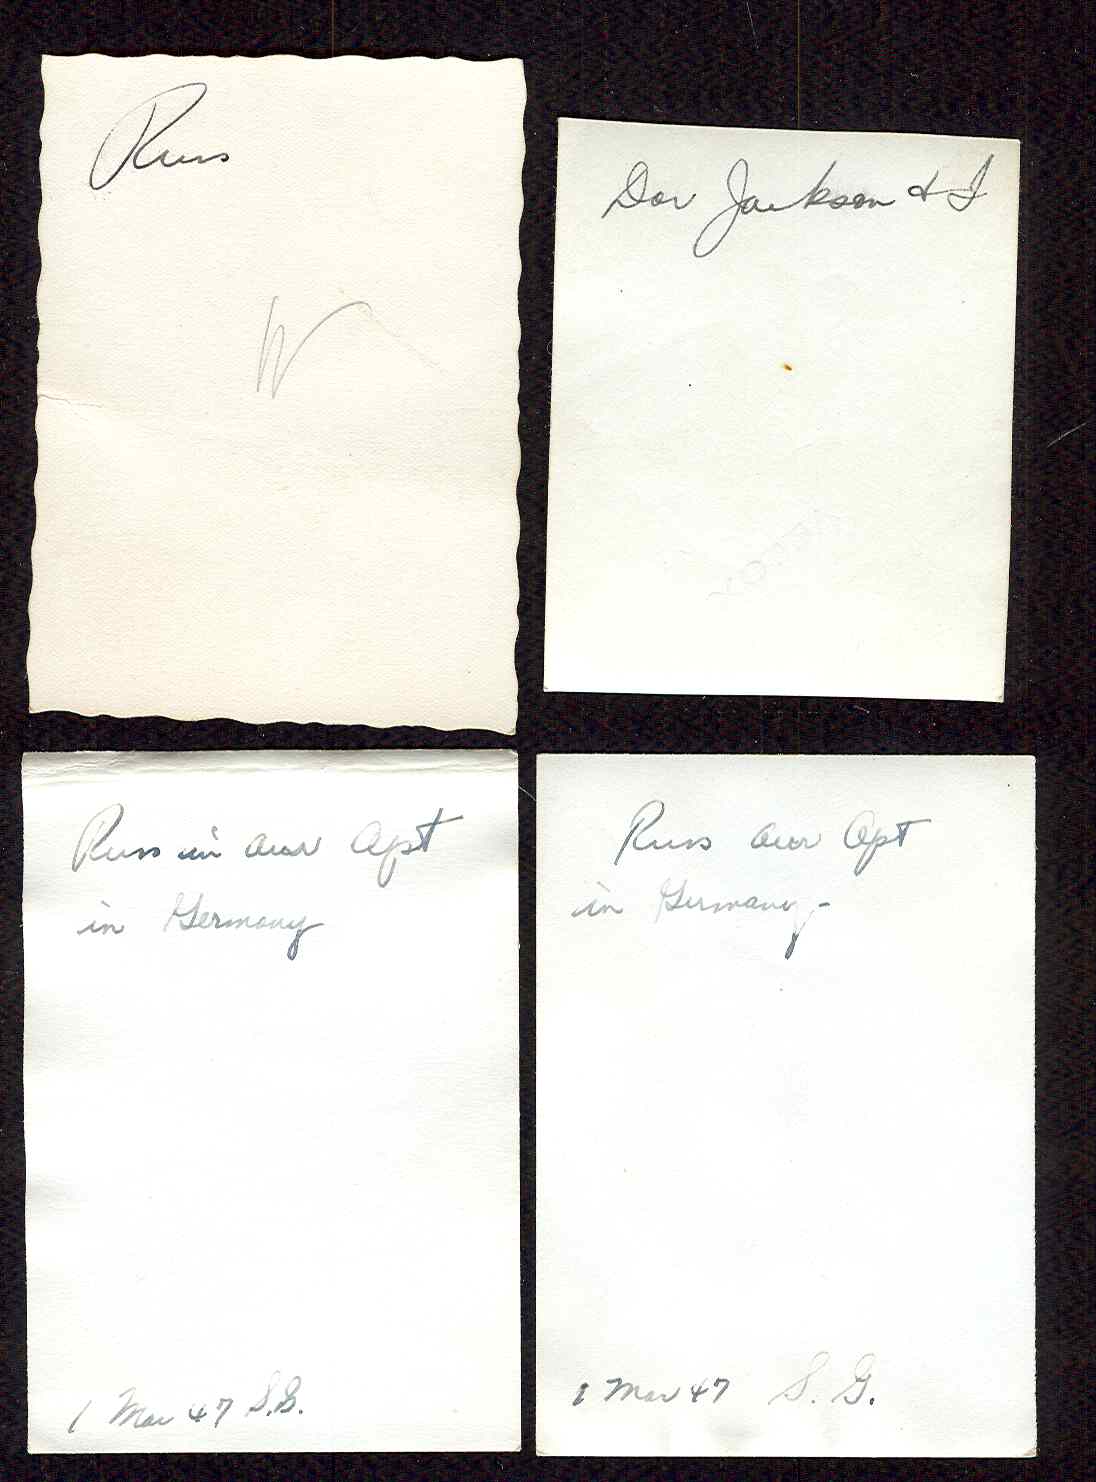 Russ
Dor Jackson & I
Russ in our Apt
in Germany
1 Mar 47 S.G.
Russ our Apt
in Germany-
1 Mar 47 S. G.